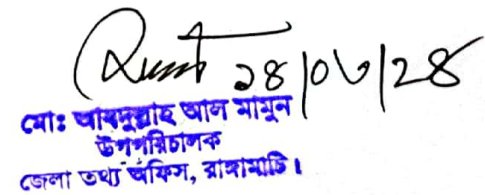 ২৪/০৬/২৪
মোঃ আবদুল্লাহ আল মামুন
উপপরিচালক
জেলা তথ্য অফিস, রাঙ্গামাটি।